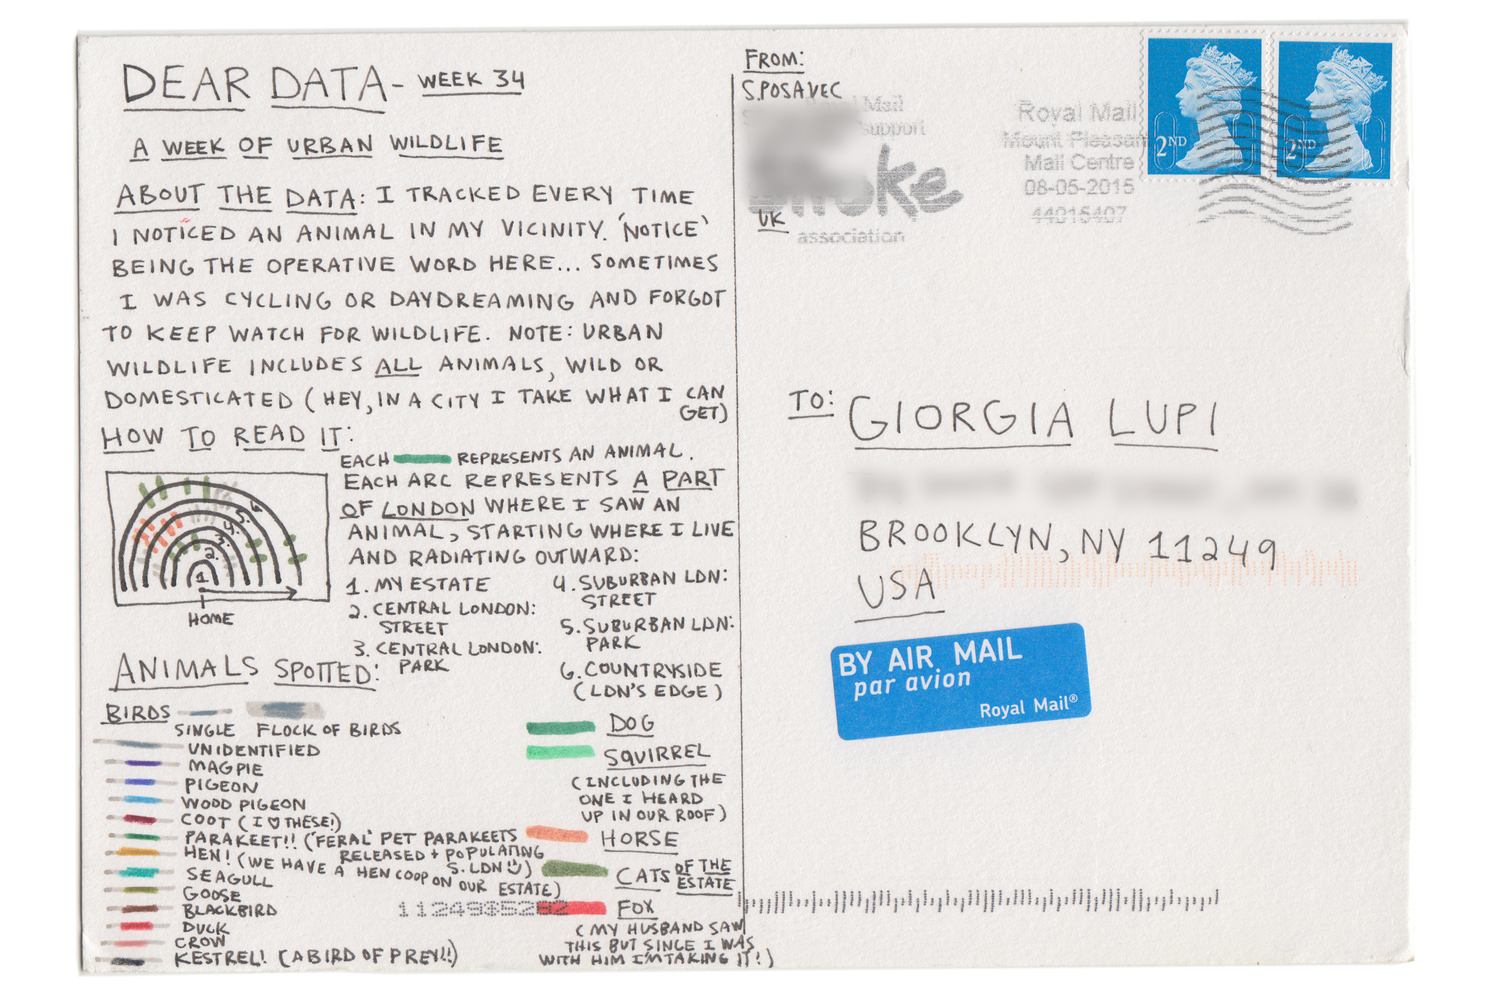 DEAR DATA - WEEK 34
A WEEK OF URBAN WILDLIFE
ABOUT THE DATA: I TRACKED EVERY TIME
I NOTICED AN ANIMAL IN MY VICINITY. 'NOTICE'
BEING THE OPERATIVE WORD HERE... SOMETIMES
I WAS CYCLING OR DAYDREAMING AND FORGOT
TO KEEP WATCH FOR WILDLIFE. NOTE: URBAN
WILDLIFE INCLUDES ALL ANIMALS, WILD OR
DOMESTICATED (HEY, IN A CITY I TAKE WHAT I CAN
GET)
HOW TO READ IT:
EACH REPRESENTS AN ANIMAL.
EACH ARC REPRESENTS A PART
OF LONDON WHERE I SAW AN
ANIMAL, STARTING WHERE I LIVE
AND RADIATING OUTWARD:
1. MY ESTATE
2. CENTRAL LONDON:
STREET
3. CENTRAL LONDON:
PARK
4. SUBURBAN LDN:
STREET
5. SUBURBAN LDN:
PARK
6. COUNTRYSIDE
(LDN'S EDGE)
6.
5.
4.
3.
2.
1
HOME
ANIMALS SPOTTED:
BIRDS
SINGLE FLOCK OF BIRDS
UNIDENTIFIED
MAGPIE
PIGEON
WOOD PIGEON
COOT (I ♡ THESE!)
PARAKEET!! ('FERAL' PET PARAKEETS
RELEASED + POPULATING
S. LDN ☺)
HEN! (WE HAVE A HEN COOP ON OUR ESTATE)
SEAGULL
GOOSE
BLACKBIRD
DUCK
CROW
KESTREL! (A BIRD OF PREY!!)
DOG
SQUIRREL
(INCLUDING THE
ONE I HEARD
UP IN OUR ROOF)
HORSE
CATS OF THE
ESTATE
FOX
(MY HUSBAND SAW
THIS BUT SINCE I WAS
WITH HIM I'M TAKING IT!)
11249$5282
FROM:
S.POSAVEC
UK
Mail
support
association
Royal Mail
Mount Pleasant
Mail Centre
08-05-2015
44015407
2ND
2ND
TO: GIORGIA LUPI
BROOKLYN, NY 11249
USA
BY AIR MAIL
par avion
Royal Mail®